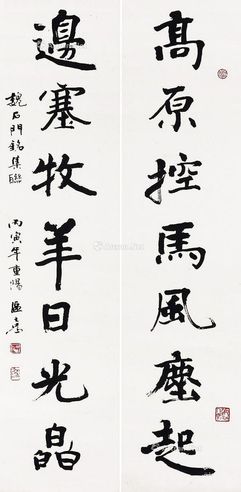 高原控馬風塵起
邊塞牧羊日光皛
魏石門銘集聯
丙寅年重陽